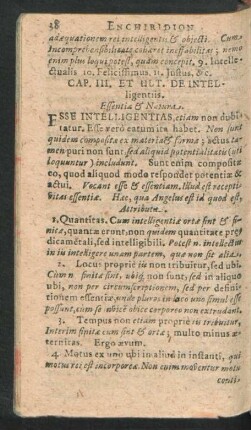 28 ENCHIRIDION
adæquationem rei intelligentis & objecti. Cum
Incomprehensibilitate cohæret ineffabilitas; nemo
enim plus loqui potest, quàm concepit. 9. Intelle-
ctualis 10. Felicissimus. 11. Justus, &c.
CAP. III. ET ULT. DE INTEL-
ligentiis.
Essentia & Natura.
ESSE INTELLIGENTIAS, etiam non dubi-
tatur. Esse verò earum ita habet. Non sunt
quidem compositæ ex materia & forma; actus ta-
men puri non sunt, sed aliquid potentialitatis (uti
loquuntur) includunt. Sunt enim compositæ
eo, quod aliquo modo respondet potentiæ &
actui. Vocant esse & essentiam. Illud est recepti-
vitas essentiæ. Hæc, qua Angelus est id quod est,
Attributa.
1. Quantitas. Cum intelligentiæ ortæ sint &
nicæ, quantæ erunt: non quidem quantitate præ-
dicamétali, sed intelligibili. Potest n. intellectus
in iu intelligere unam partem, quæ non sit alia.
2. Locus: propriè iis non tribuitur, sed ubi.
Cùm n. finitæ sint, ubiq́; non sunt; sed in aliquo
ubi, non per circumscriptionem, sed per defini-
tionem essentiæ, unde plures in loco uno simul esse
possunt, cùm se non è ubi corporeo non extendant.
3. Tempus non etiam propriè iis tribuitur,
Interim finitæ cum sint & ortæ; multo minus æ-
ternitas. Ergo ævum.
4 Motus ex uno ubi in aliud in instanti, qui
motus rei est incorporeæ. Non enim moventur motu
conti-